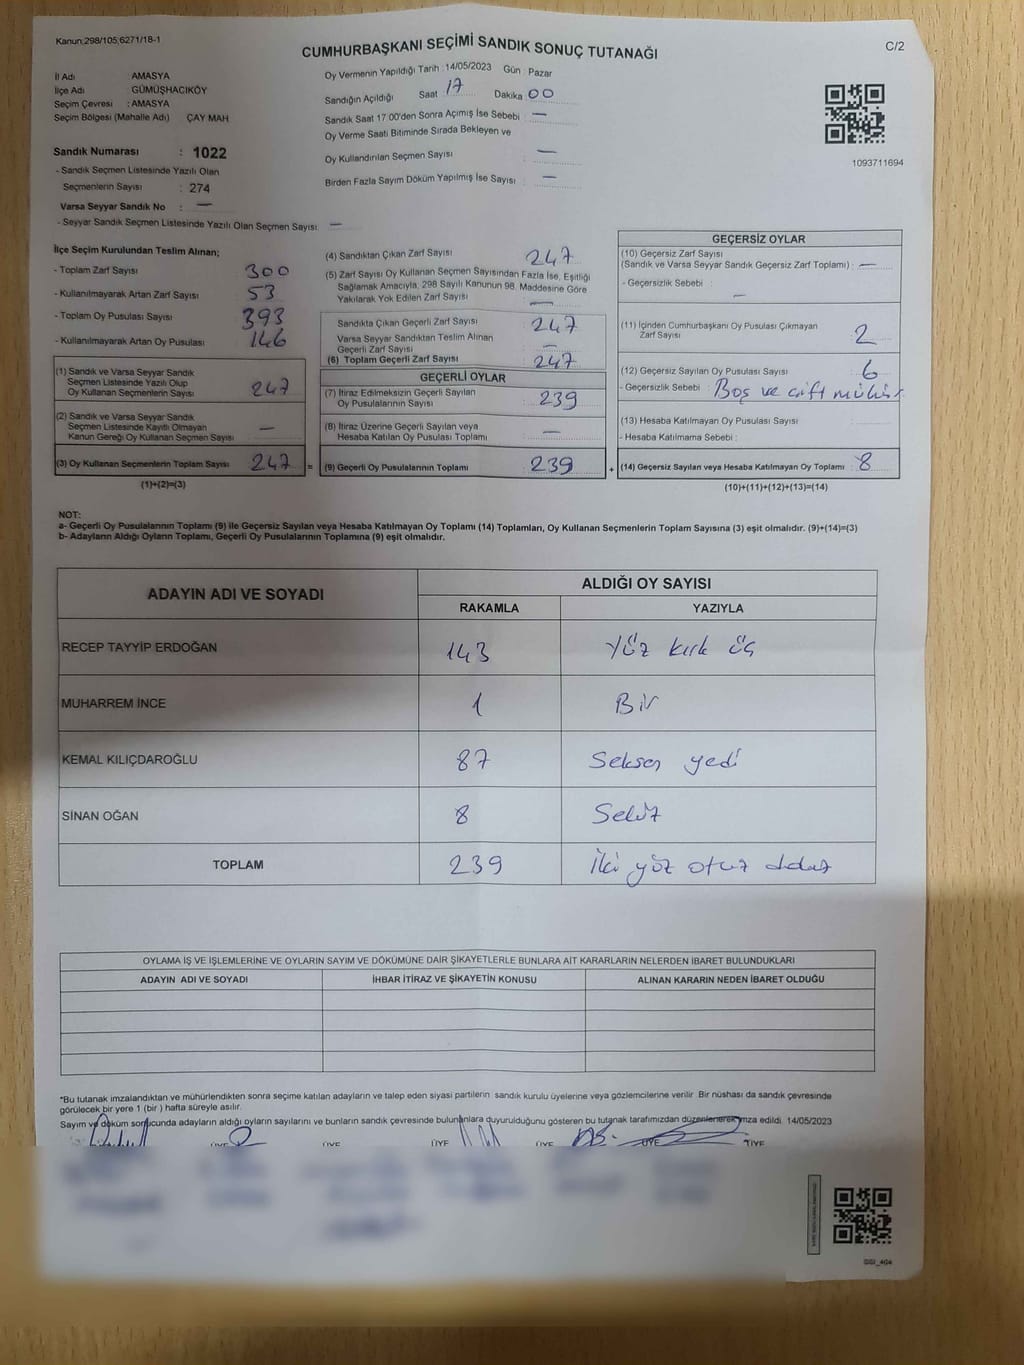 Kanun;298/105;6271/18-1
C/2
CUMHURBAŞKANI SEÇİMİ SANDIK SONUÇ TUTANAĞI
İl Adı AMASYA
İlçe Adı GÜMÜŞHACIKÖY
Seçim Çevresi : AMASYA
Seçim Bölgesi (Mahalle Adı) ÇAY MAH
Sandık Numarası : 1022
- Sandık Seçmen Listesinde Yazılı Olan
Seçmenlerin Sayısı : 274
Varsa Seyyar Sandık No : —
- Seyyar Sandık Seçmen Listesinde Yazılı Olan Seçmen Sayısı: —
Oy Vermenin Yapıldığı Tarih : 14/05/2023 Gün : Pazar
Sandığın Açıldığı Saat 17 Dakika 00
Sandık Saat 17.00'den Sonra Açılmış İse Sebebi : —
Oy Verme Saati Bitiminde Sırada Bekleyen ve
Oy Kullandırılan Seçmen Sayısı —
Birden Fazla Sayım Döküm Yapılmış İse Sayısı : —
1093711694
İlçe Seçim Kurulundan Teslim Alınan;
- Toplam Zarf Sayısı 300
- Kullanılmayarak Artan Zarf Sayısı 53
- Toplam Oy Pusulası Sayısı 393
- Kullanılmayarak Artan Oy Pusulası 146
(1) Sandık ve Varsa Seyyar Sandık
Seçmen Listesinde Yazılı Olup
Oy Kullanan Seçmenlerin Sayısı 247
(2) Sandık ve Varsa Seyyar Sandık
Seçmen Listesinde Kayıtlı Olmayan
Kanun Gereği Oy Kullanan Seçmen Sayısı —
(3) Oy Kullanan Seçmenlerin Toplam Sayısı 247 =
(1)+(2)=(3)
(4) Sandıktan Çıkan Zarf Sayısı 247
(5) Zarf Sayısı Oy Kullanan Seçmen Sayısından Fazla İse, Eşitliği
Sağlamak Amacıyla, 298 Sayılı Kanunun 98. Maddesine Göre
Yakılarak Yok Edilen Zarf Sayısı —
Sandıkta Çıkan Geçerli Zarf Sayısı 247
Varsa Seyyar Sandıktan Teslim Alınan
Geçerli Zarf Sayısı —
(6) Toplam Geçerli Zarf Sayısı 247
GEÇERLİ OYLAR
(7) İtiraz Edilmeksizin Geçerli Sayılan
Oy Pusulalarının Sayısı 239
(8) İtiraz Üzerine Geçerli Sayılan veya
Hesaba Katılan Oy Pusulası Toplamı —
(9) Geçerli Oy Pusulalarının Toplamı 239 +
GEÇERSİZ OYLAR
(10) Geçersiz Zarf Sayısı
(Sandık ve Varsa Seyyar Sandık Geçersiz Zarf Toplamı) : —
- Geçersizlik Sebebi :
—
(11) İçinden Cumhurbaşkanı Oy Pusulası Çıkmayan
Zarf Sayısı 2
(12) Geçersiz Sayılan Oy Pusulası Sayısı 6
- Geçersizlik Sebebi : Boş ve çift mühür
(13) Hesaba Katılmayan Oy Pusulası Sayısı :
- Hesaba Katılmama Sebebi :
(14) Geçersiz Sayılan veya Hesaba Katılmayan Oy Toplamı : 8
(10)+(11)+(12)+(13)=(14)
NOT:
a- Geçerli Oy Pusulalarının Toplamı (9) ile Geçersiz Sayılan veya Hesaba Katılmayan Oy Toplamı (14) Toplamları, Oy Kullanan Seçmenlerin Toplam Sayısına (3) eşit olmalıdır. (9)+(14)=(3)
b- Adayların Aldığı Oyların Toplamı, Geçerli Oy Pusulalarının Toplamına (9) eşit olmalıdır.
ADAYIN ADI VE SOYADI
ALDIĞI OY SAYISI
RAKAMLA YAZIYLA
RECEP TAYYİP ERDOĞAN 143 Yüz kırk üç
MUHARREM İNCE 1 Bir
KEMAL KILIÇDAROĞLU 87 Seksen yedi
SİNAN OĞAN 8 Sekiz
TOPLAM 239 İki yüz otuz dokuz
OYLAMA İŞ VE İŞLEMLERİNE VE OYLARIN SAYIM VE DÖKÜMÜNE DAİR ŞİKAYETLERLE BUNLARA AİT KARARLARIN NELERDEN İBARET BULUNDUKLARI
ADAYIN ADI VE SOYADI İHBAR İTİRAZ VE ŞİKAYETİN KONUSU ALINAN KARARIN NEDEN İBARET OLDUĞU
*Bu tutanak imzalandıktan ve mühürlendikten sonra seçime katılan adayların ve talep eden siyasi partilerin sandık kurulu üyelerine veya gözlemcilerine verilir. Bir nüshası da sandık çevresinde
görülecek bir yere 1 (bir ) hafta süreyle asılır.
Sayım ve döküm sonucunda adayların aldığı oyların sayılarını ve bunların sandık çevresinde bulunanlara duyurulduğunu gösteren bu tutanak tarafımızdan düzenlenerek imza edildi. 14/05/2023
ÜYE ÜYE ÜYE ÜYE ÜYE ÜYE